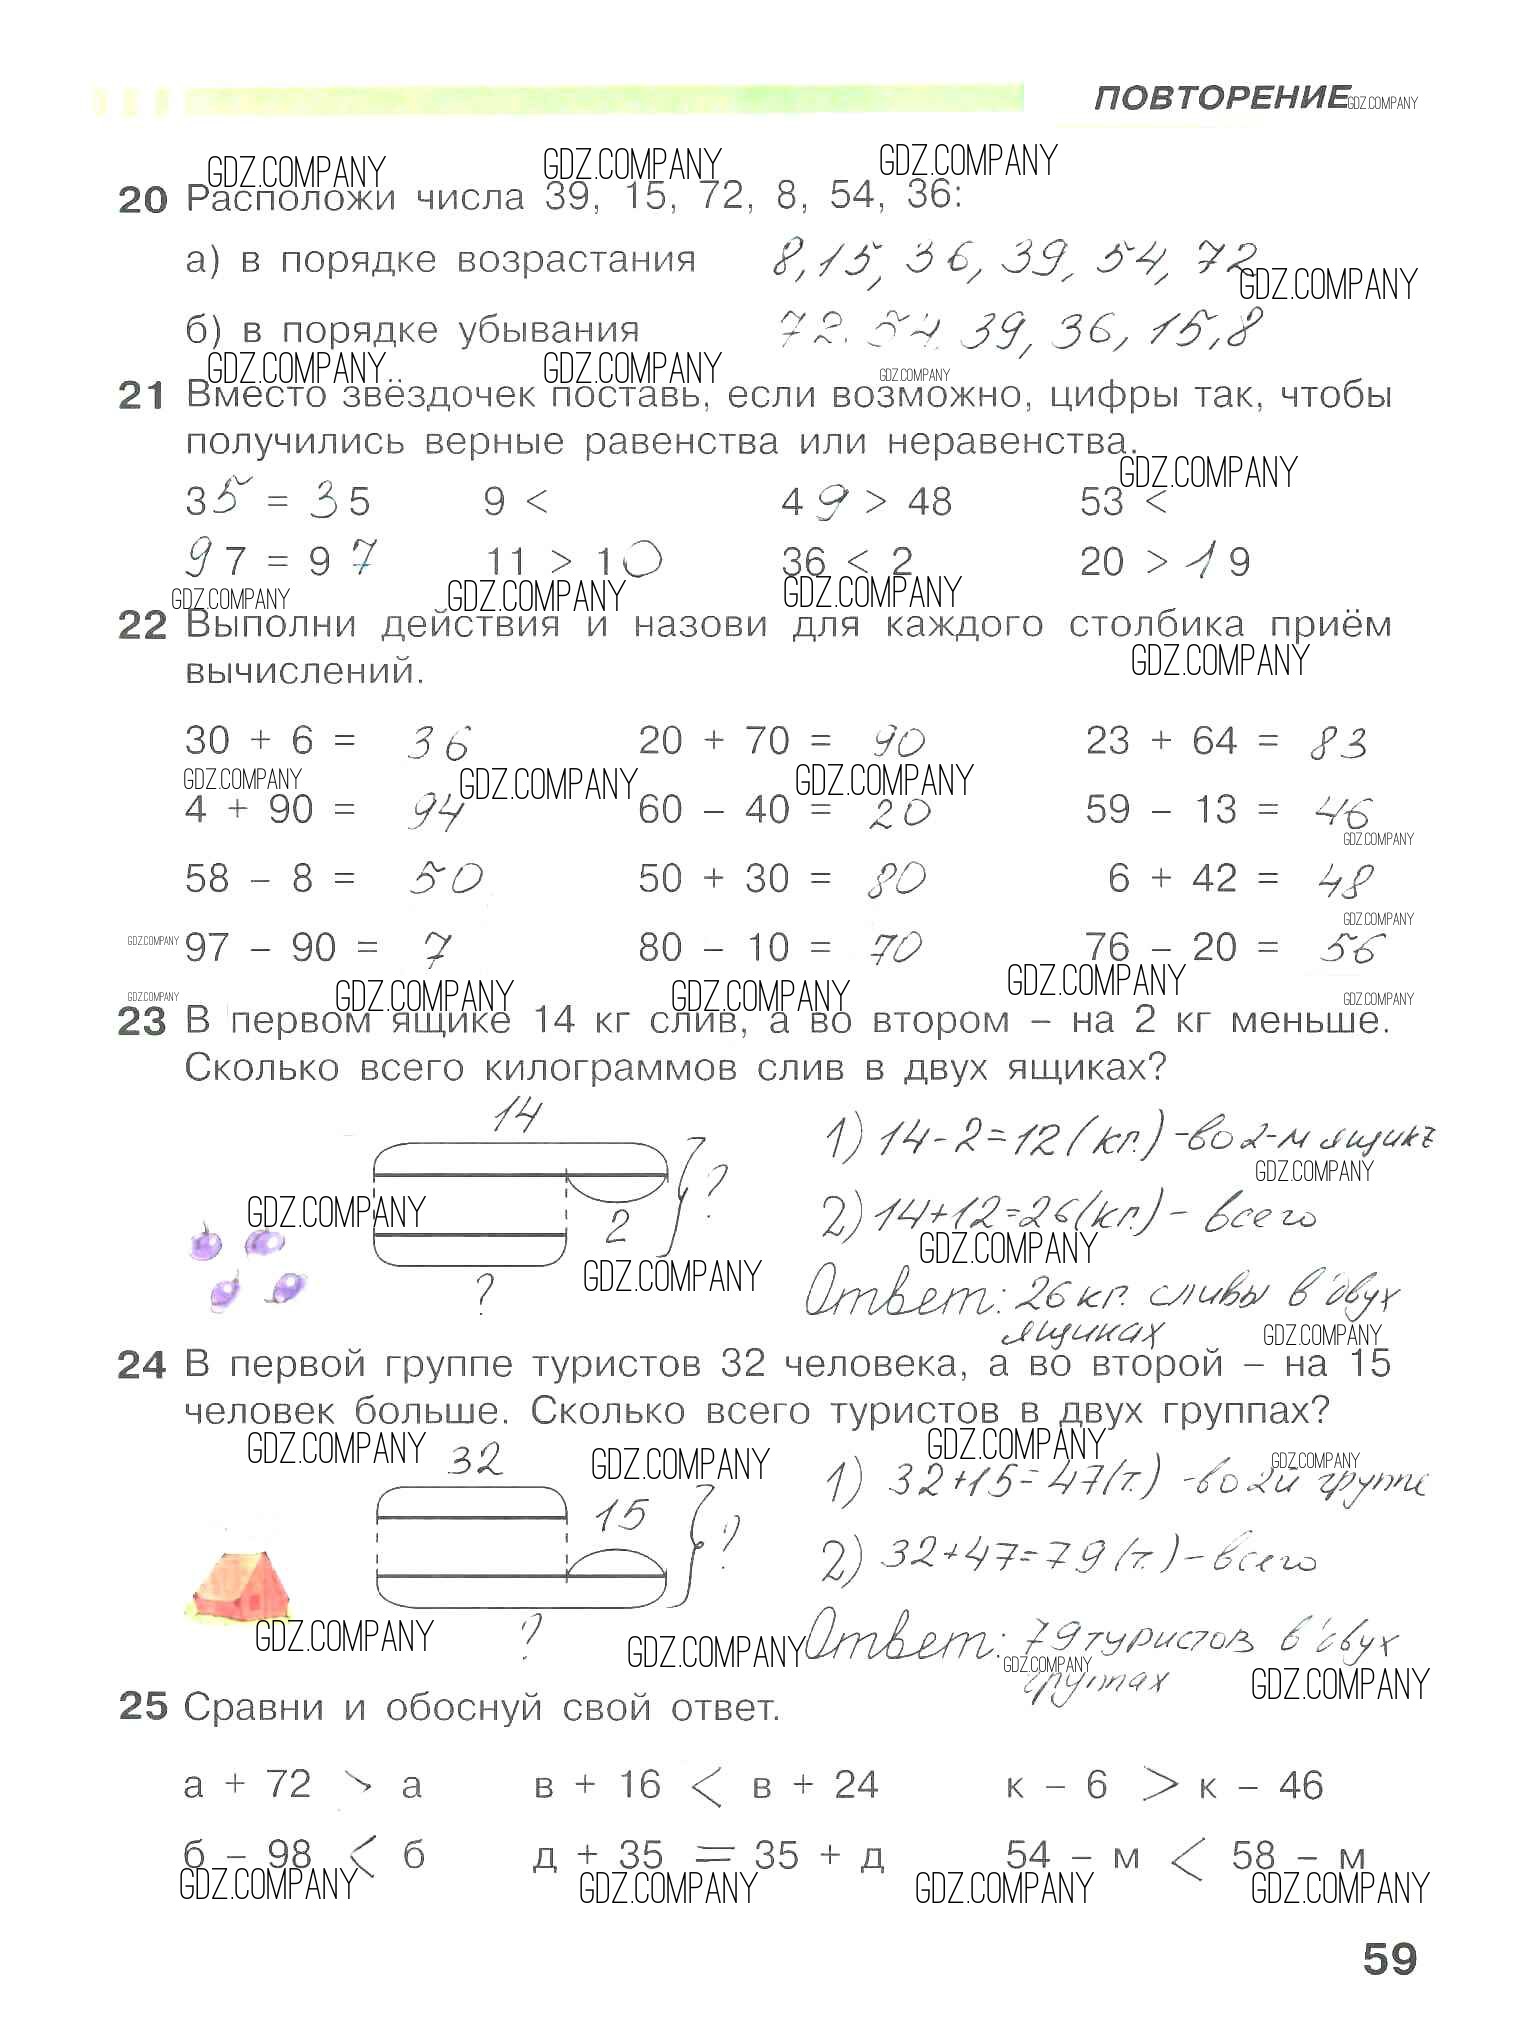 ПОВТОРЕНИЕ GDZ.COMPANY
GDZ.COMPANY GDZ.COMPANY GDZ.COMPANY
20 Расположи числа 39, 15, 72, 8, 54, 36:
а) в порядке возрастания 8, 15, 36, 39, 54, 72
GDZ.COMPANY
б) в порядке убывания 72. 54. 39, 36, 15, 8
GDZ.COMPANY GDZ.COMPANY GDZ.COMPANY
21 Вместо звёздочек поставь, если возможно, цифры так, чтобы
получились верные равенства или неравенства.
GDZ.COMPANY
35 = 35 9 < 49 > 48 53 <
97 = 97 11 > 10 36 < 2 20 > 19
GDZ.COMPANY GDZ.COMPANY GDZ.COMPANY
22 Выполни действия и назови для каждого столбика приём
вычислений.
GDZ.COMPANY
30 + 6 = 36 20 + 70 = 90 23 + 64 = 83
GDZ.COMPANY GDZ.COMPANY GDZ.COMPANY
4 + 90 = 94 60 – 40 = 20 59 – 13 = 46
GDZ.COMPANY
58 – 8 = 50 50 + 30 = 80 6 + 42 = 48
GDZ.COMPANY
GDZ.COMPANY 97 – 90 = 7 80 – 10 = 70 76 – 20 = 56
GDZ.COMPANY GDZ.COMPANY GDZ.COMPANY GDZ.COMPANY GDZ.COMPANY
23 В первом ящике 14 кг слив, а во втором – на 2 кг меньше.
Сколько всего килограммов слив в двух ящиках?
14
1) 14-2=12 (кг.) -во 2-м ящике
GDZ.COMPANY
?
GDZ.COMPANY
2
2) 14+12=26(кг.) - всего
GDZ.COMPANY
GDZ.COMPANY
?
Ответ: 26 кг. сливы в двух
ящиках
GDZ.COMPANY
24 В первой группе туристов 32 человека, а во второй – на 15
человек больше. Сколько всего туристов в двух группах?
GDZ.COMPANY GDZ.COMPANY GDZ.COMPANY GDZ.COMPANY
32
1) 32+15=47(т.) -во 2й группе
15
?
2) 32+47=79(т.) -всего
GDZ.COMPANY
?
GDZ.COMPANY
Ответ: 79 туристов в двух
GDZ.COMPANY
группах
GDZ.COMPANY
25 Сравни и обоснуй свой ответ.
а + 72 > а в + 16 < в + 24 к – 6 > к – 46
б – 98 < б д + 35 = 35 + д 54 – м < 58 – м
GDZ.COMPANY GDZ.COMPANY GDZ.COMPANY GDZ.COMPANY
59